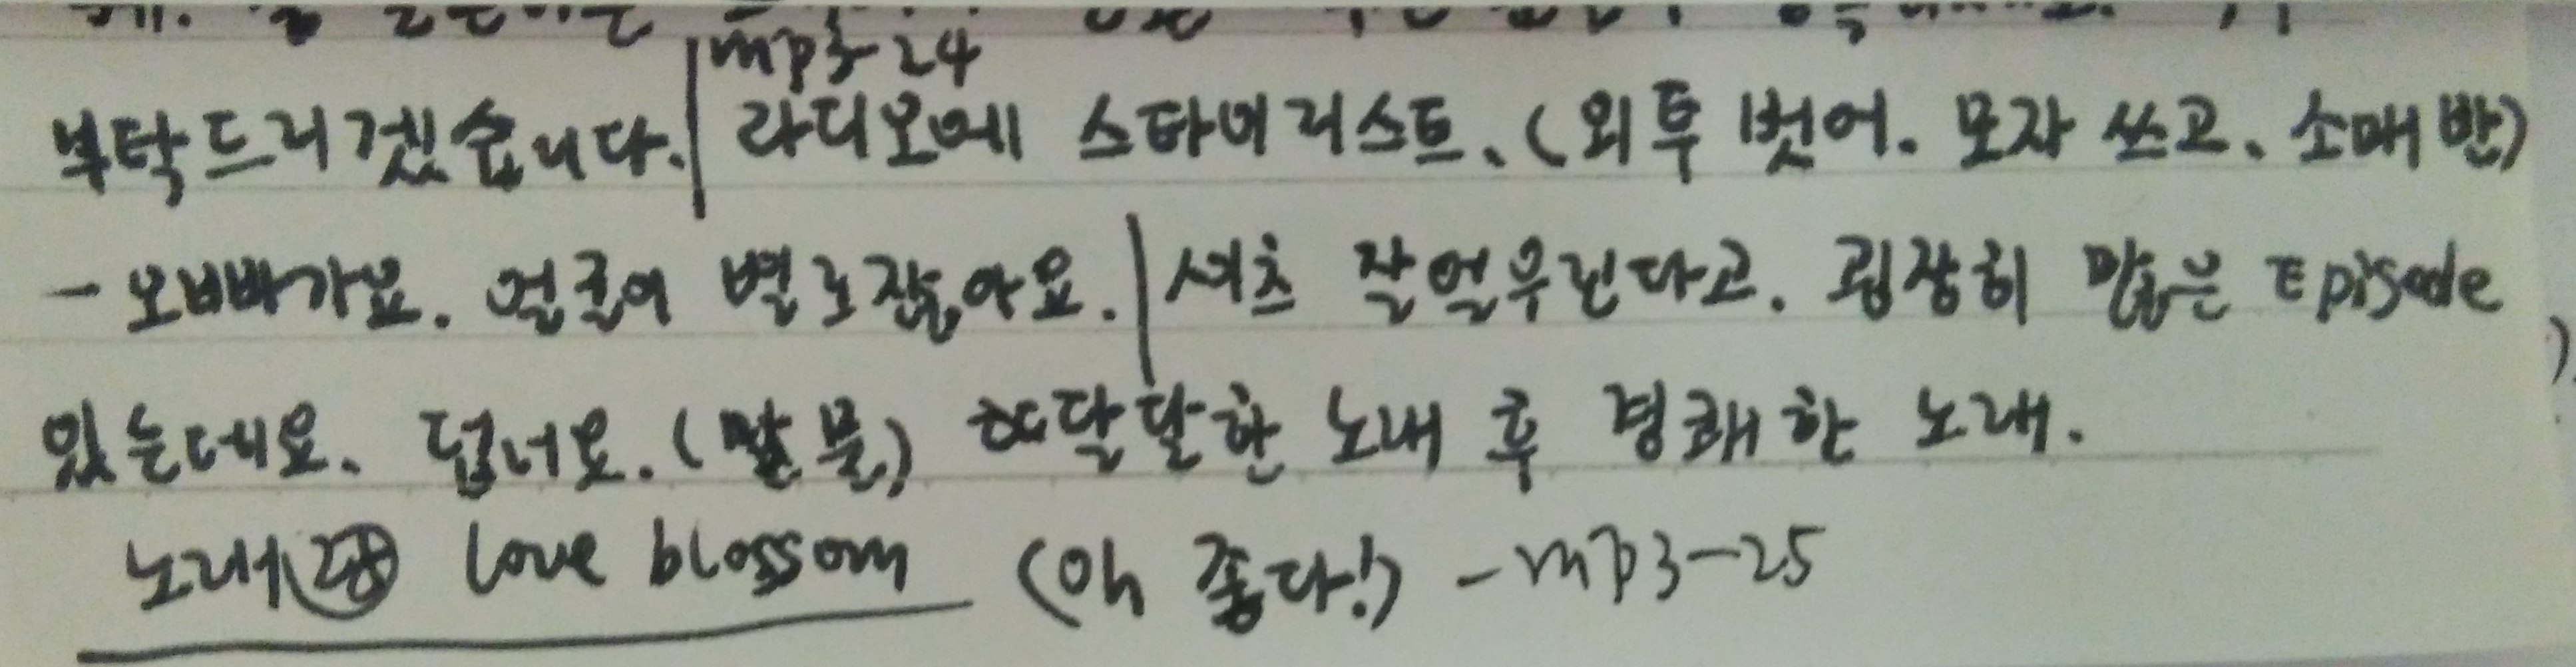 mp3-24
부탁드리겠습니다. | 라디오에 스타이리스트. (외투 벗어. 모자 쓰고. 소매 반)
- 오빠가요. 얼굴이 별로잖아요. | 셔츠 잘 어울린다고. 굉장히 많은 Episode
있는데요. 덥네요. (말 뿐) 달달한 노래 후 경쾌한 노래.
노래 love blossom (oh 좋다!) - mp3-25